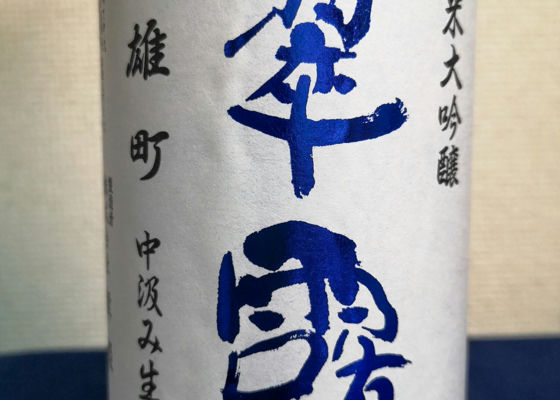 米大吟醸
翠露
雄町 中汲み生